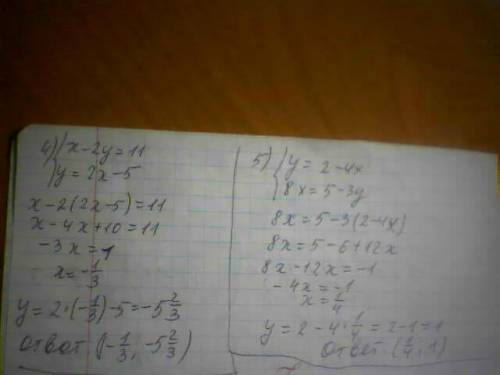 4) { x-2y=11
y=2x-5
x-2(2x-5)=11
x-4x+10=11
-3x=1
x=-1/3
y=2·(-1/3)-5=-5 2/3
ответ (-1/3; -5 2/3)
5) { y=2-4x
8x=5-3y
8x=5-3(2-4x)
8x=5-6+12x
8x-12x=-1
-4x=-1
x=1/4
y=2-4·1/4=2-1=1
ответ (1/4; 1)